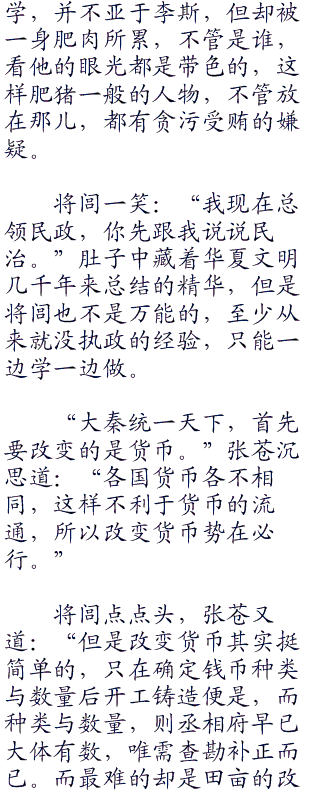 学，并不亚于李斯，但却被
一身肥肉所累，不管是谁，
看他的眼光都是带色的，这
样肥猪一般的人物，不管放
在那儿，都有贪污受贿的嫌
疑。
将闾一笑：“我现在总
领民政，你先跟我说说民
治。”肚子中藏着华夏文明
几千年来总结的精华，但是
将闾也不是万能的，至少从
来就没执政的经验，只能一
边学一边做。
“大秦统一天下，首先
要改变的是货币。”张苍沉
思道：“各国货币各不相
同，这样不利于货币的流
通，所以改变货币势在必
行。”
将闾点点头，张苍又
道：“但是改变货币其实挺
简单的，只在确定钱币种类
与数量后开工铸造便是，而
种类与数量，则丞相府早已
大体有数，唯需查勘补正而
已。而最难的却是田亩的改